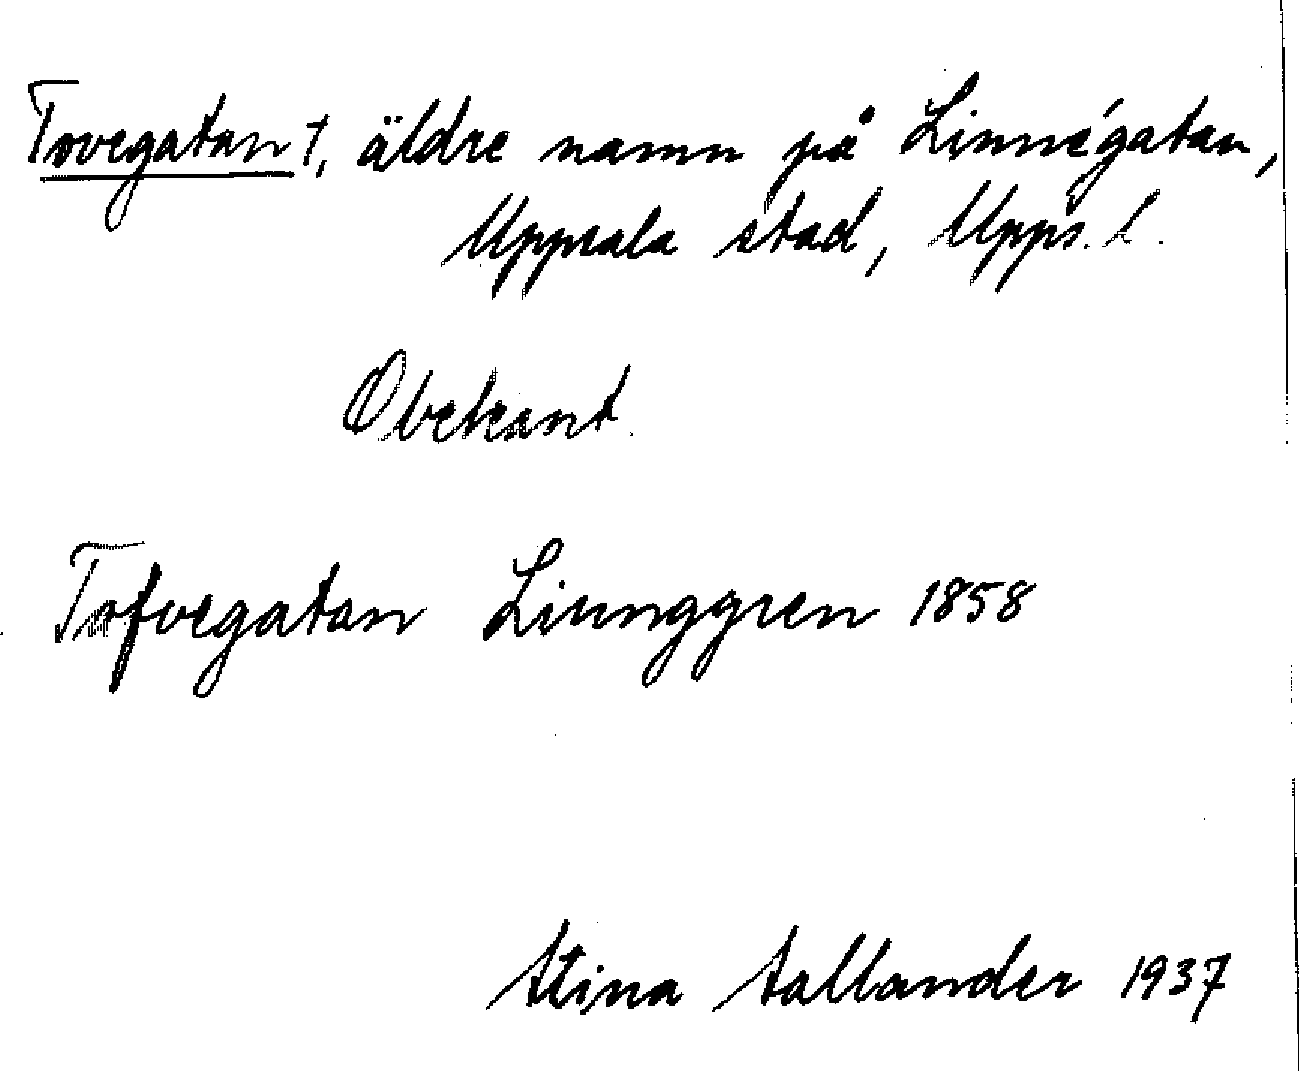 Tovegatan †, äldre namn på Linnégatan,
Uppsala stad, Upps. l.
Obekant.
Tofvegatan Ljunggren 1858
Stina Sallander 1937